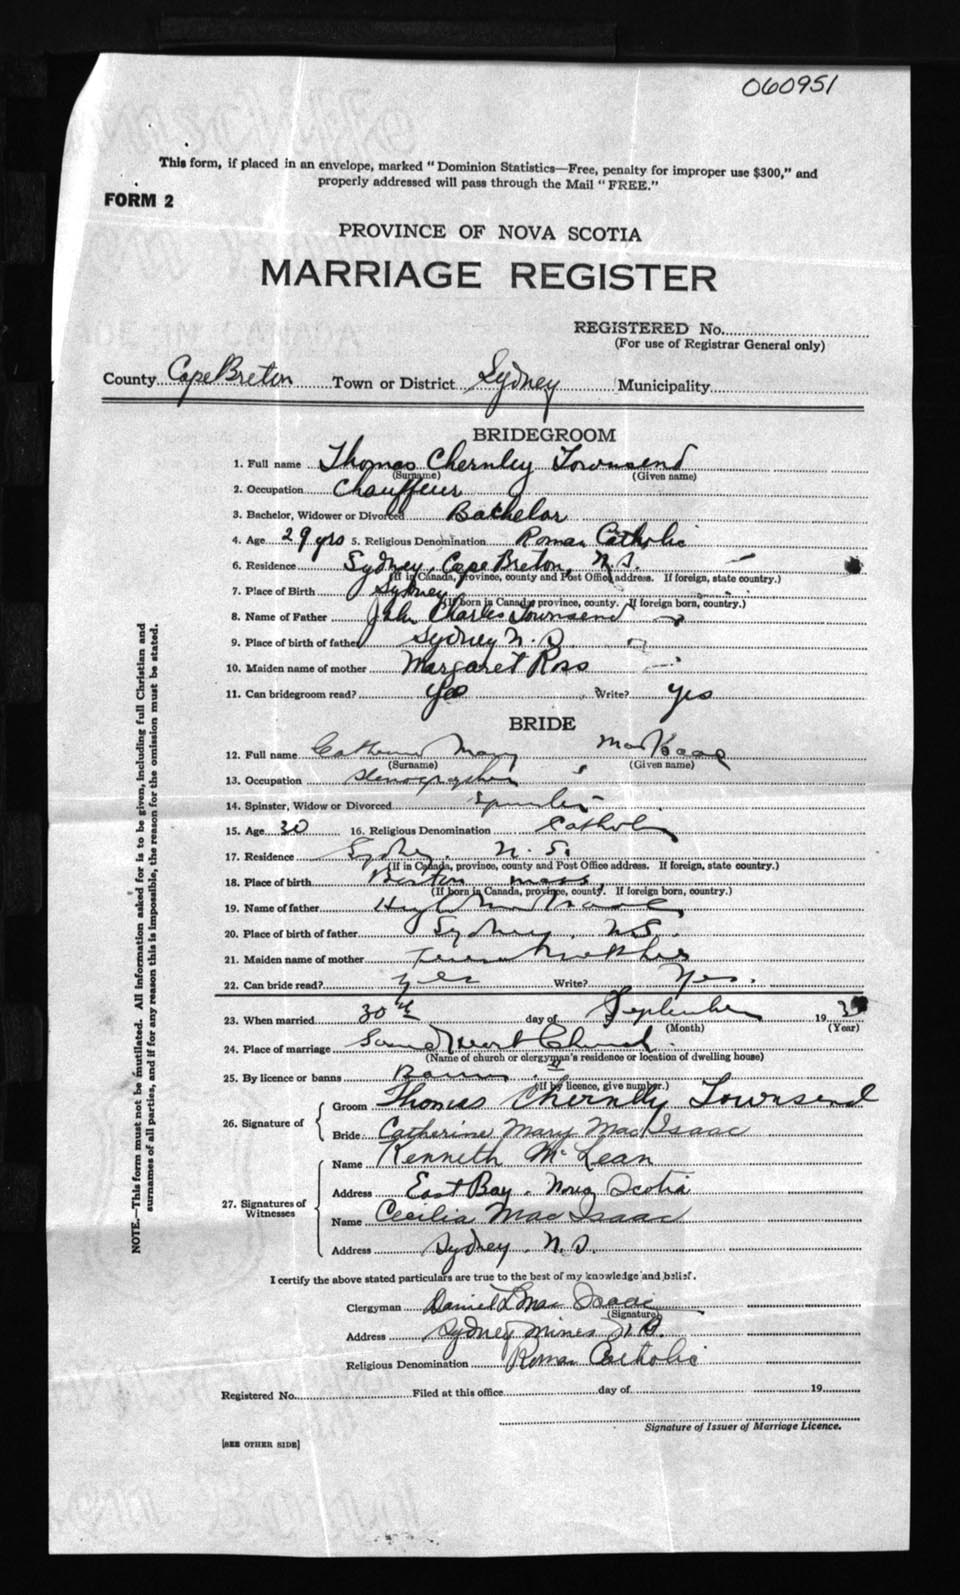 060951
This form, if placed in an envelope, marked "Dominion Statistics—Free, penalty for improper use $300," and
properly addressed will pass through the Mail "FREE."
FORM 2
PROVINCE OF NOVA SCOTIA
MARRIAGE REGISTER
REGISTERED No.
(For use of Registrar General only)
County Cape Breton Town or District Sydney Municipality
BRIDEGROOM
1. Full name Thomas Chernley Townsend
(Surname) (Given name)
2. Occupation Chauffeur
3. Bachelor, Widower or Divorced Bachelor
4. Age 29 yrs 5. Religious Denomination Roman Catholic
6. Residence Sydney, Cape Breton, N.S.
(If in Canada, province, county and Post Office address. If foreign, state country.)
7. Place of Birth Sydney
(If born in Canada, province, county. If foreign born, country.)
8. Name of Father John Charles Townsend
9. Place of birth of father Sydney N.S.
10. Maiden name of mother Margaret Ross
11. Can bridegroom read? yes Write? yes
BRIDE
12. Full name Catherine Mary MacIsaac
(Surname) (Given name)
13. Occupation Stenographer
14. Spinster, Widow or Divorced Spinster
15. Age 30 16. Religious Denomination Catholic
17. Residence Sydney, N.S.
(If in Canada, province, county and Post Office address. If foreign, state country.)
18. Place of birth Boston Mass,
(If born in Canada, province, county. If foreign born, country.)
19. Name of father Hugh MacIsaac
20. Place of birth of father Sydney, N.S.
21. Maiden name of mother Teresa
22. Can bride read? yes Write? Yes.
23. When married 30th day of September 193
(Month) (Year)
24. Place of marriage Sacred Heart Church.
(Name of church or clergyman's residence or location of dwelling house)
25. By licence or banns Banns
(If by licence, give number.)
26. Signature of
Groom Thomas Chernley Townsend
Bride Catherine Mary MacIsaac
27. Signatures of Witnesses
Name Kenneth McLean
Address East Bay, Nova Scotia
Name Cecilia MacIsaac
Address Sydney, N.S.
I certify the above stated particulars are true to the best of my knowledge and belief.
Clergyman Daniel L MacIsaac
(Signature)
Address Sydney Mines N.S.
Religious Denomination Roman Catholic
Registered No. Filed at this office day of 19
Signature of Issuer of Marriage Licence.
[SEE OTHER SIDE]
NOTE.—This form must not be mutilated. All information asked for is to be given, including full Christian and
surnames of all parties, and if for any reason this is impossible, the reason for the omission must be stated.